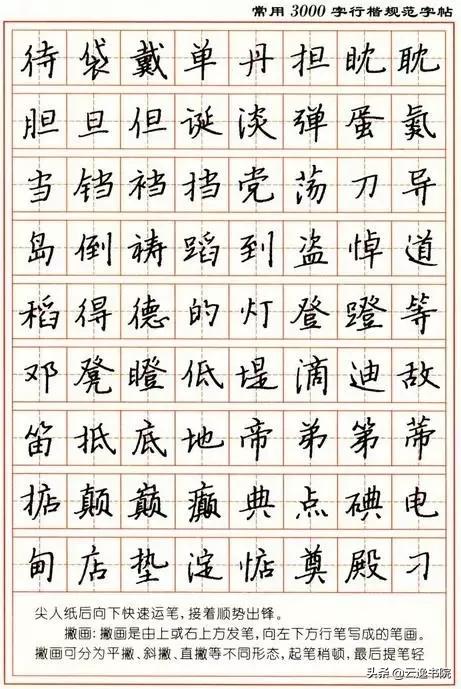 常用3000字行楷规范字帖
待袋戴单丹担眈耽
胆旦但诞淡弹蛋氮
当铛裆挡党荡刀导
岛倒祷蹈到盗悼道
稻得德的灯登蹬等
邓凳瞪低堤滴迪敌
笛抵底地帝弟第蒂
掂颠巅癫典点碘电
甸店垫淀惦奠殿刁
尖入纸后向下快速运笔,接着顺势出锋。
撇画:撇画是由上或右上方发笔,向左下方行笔写成的笔画。
撇画可分为平撇、斜撇、直撇等不同形态,起笔稍顿,最后提笔轻
头条 @云逸书院